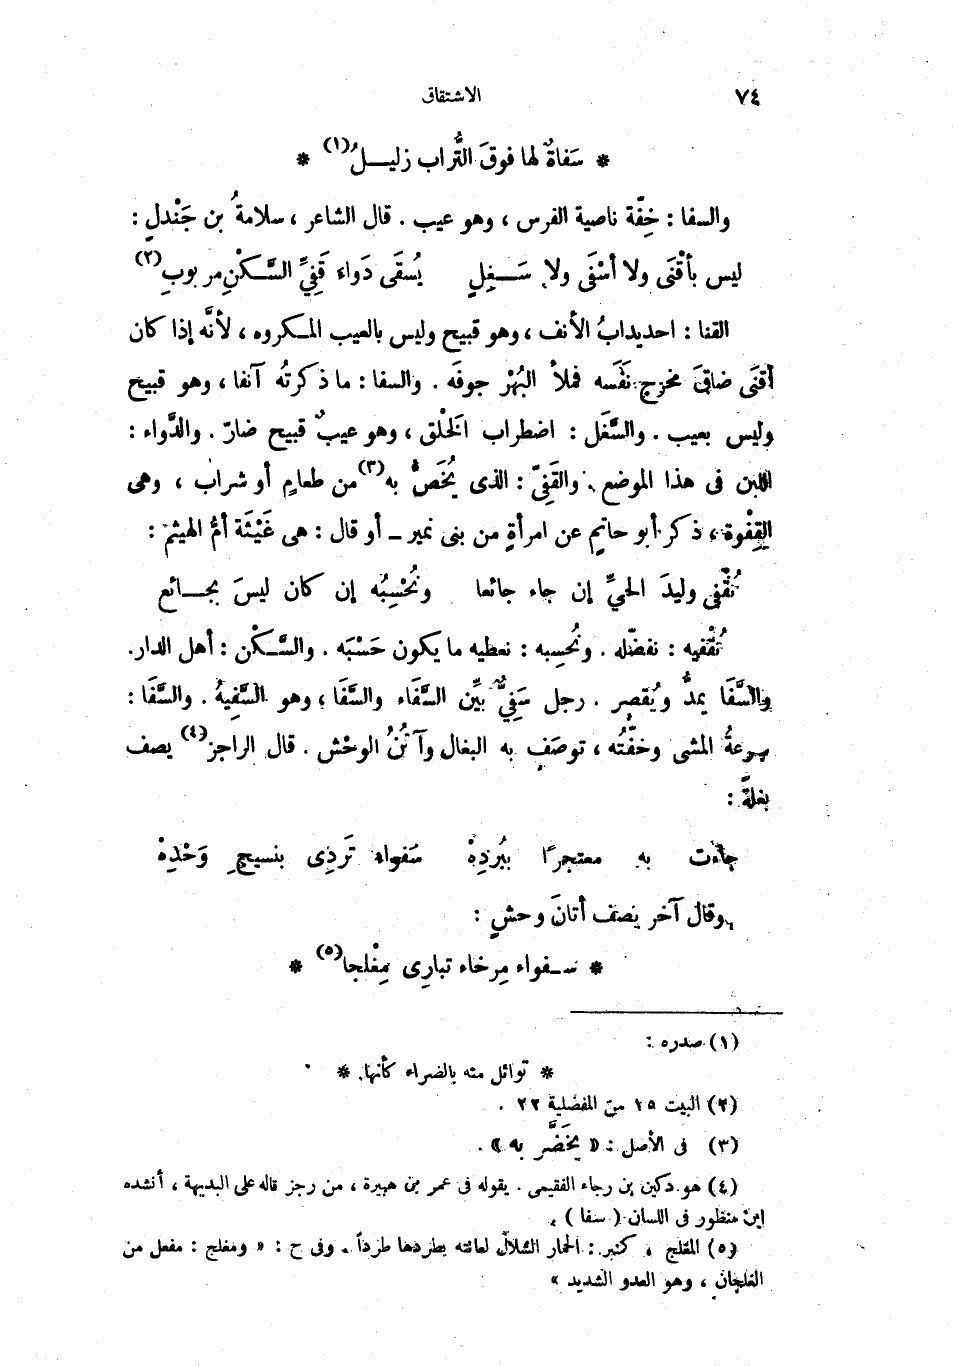 ٧٤ الاشتقاق
* سَفاةٌ لها فوقَ التُّراب زليـــلُ(١) *
والسفا : خِفّة ناصية الفرس ، وهو عيب . قال الشاعر ، سلامةُ بن جَنْدلٍ :
ليس بأقْنَى ولا أسْفَى ولا سَـــغِلٍ يُسقَى دَواءَ قَفِيِّ السَّكْنِ مربوبِ(٢)
القنا : احديدابُ الأنف ، وهو قبيح وليس بالعيب المكروه ، لأنَّه إذا كان
أقنَى ضاقَ مخرج نَفَسه فملأ البُهْر جوفَه . والسفا : ما ذكرتُه آنفا ، وهو قبيح
وليس بعيب . والسَّغَل : اضطراب الخَلْق ، وهو عيبٌ قبيح ضارّ . والدَّواء :
اللبن فى هذا الموضع . والقَفِيّ : الذى يُخَصُّ به(٣) من طعامٍ أو شراب ، وهى
القِفْوة ، ذكر أبو حاتمٍ عن امرأةٍ من بنى نمير ــ أو قال : هى غَيْثَة أمُّ الهيثم :
نُقْفِى وليدَ الحيِّ إن جاء جائعا ونُحْسِبُه إن كان ليسَ بجـــائع
نُقْفيه : نفضّله . ونُحسِبه : نعطيه ما يكون حَسْبَه . والسَّكْن : أهل الدار.
والسَّفَا يمدُّ ويُقصر . رجل سَفِيٌّ بيِّن السَّفَاء والسَّفَا ؛ وهو السَّفِيهُ . والسَّفَا :
سرعةُ المشى وخفّتُه ، توصَف به البغال وآتُنُ الوحْش . قال الراجز(٤) يصف
بغلةً :
جاءت به معتجرًا ببُردِهْ سَفواء تَردِى بنسيج وَحْدِهْ
وقال آخر يصف أتانَ وحشٍ :
* سـفواء مِرخاء تبارِى مِغْلجا(٥) *
(١) صدره :
* توائل منه بالضراء كأنها *
(٢) البيت ١٥ من المفضلية ٢٢ .
(٣) فى الأصل : « يَخَضَّر به » .
(٤) هو دكين بن رجاء الفقيمى . يقوله فى عمر بن هبيرة ، من رجز قاله على البديهة ، أنشده
ابن منظور فى اللسان ( سفا ) .
(٥) المغلج ، كمنبر : الحمار الشلال لعانته يطردها طرداً . وفى ح : « ومغلج : مفعل من
الغلجان ، وهو العدو الشديد »